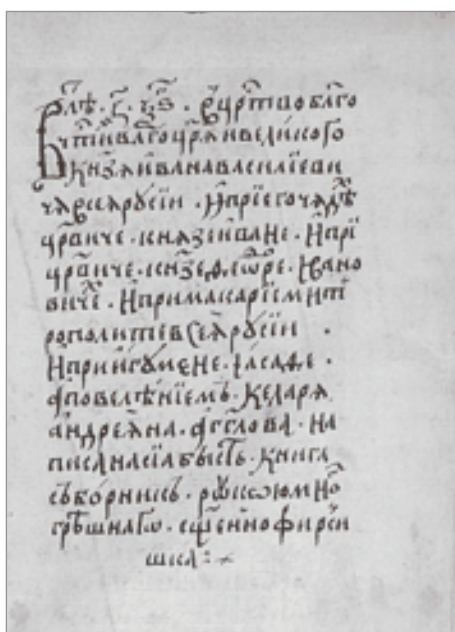 В лѣ҃ . з҃ . ч҃ѕ . В цр҃тво бл҃го
чт҃иваго цр҃я и великого
кн҃зя ивана василїеви
чя всея рꙋсїи . И при его чядѣ
цр҃виче . князе иване . И прї
цр҃виче . кн҃зе ѳеѡ҃ре . Ивано
виче . И при макарїе мит
рополите всея рꙋсїи .
И при игꙋмене .
повелѣнїемъ . келаря
андреяна . аг҃глова . на
писана сїа бысть . книга
съборникь . рꙋкою мно
грѣшнаго .
шка :